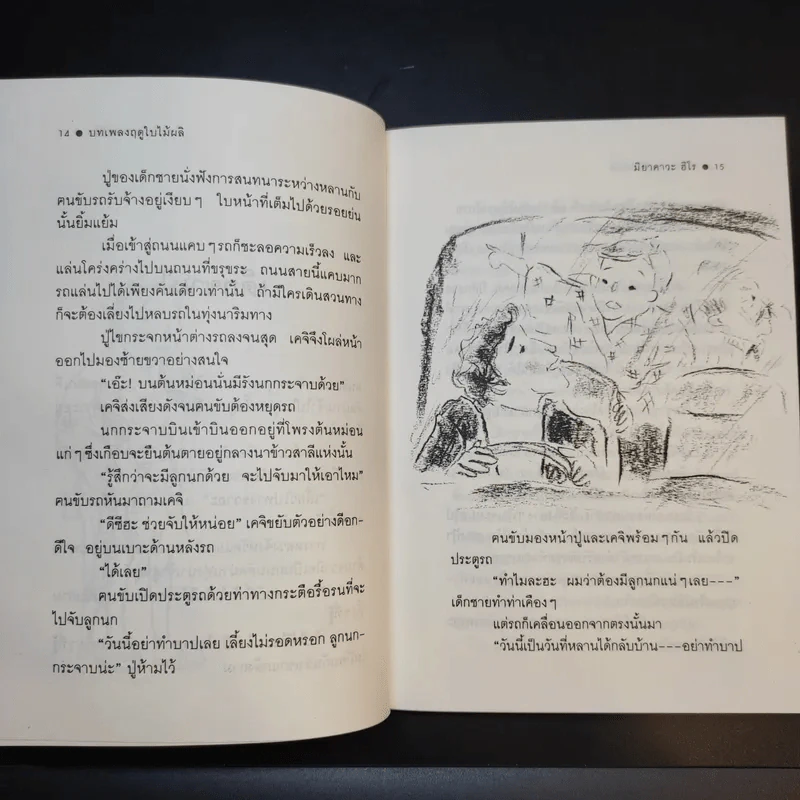 14 ● บทเพลงฤดูใบไม้ผลิ
ปู่ของเด็กชายนั่งฟังการสนทนาระหว่างหลานกับ
คนขับรถรับจ้างอยู่เงียบๆ ใบหน้าที่เต็มไปด้วยรอยย่น
นั้นยิ้มแย้ม
เมื่อเข้าสู่ถนนแคบๆรถก็ชะลอความเร็วลง และ
แล่นโคร่งคร่างไปบนถนนที่ขรุขระ ถนนสายนี้แคบมาก
รถแล่นไปได้เพียงคันเดียวเท่านั้น ถ้ามีใครเดินสวนทาง
ก็จะต้องเลี่ยงไปหลบรถในทุ่งนาริมทาง
ปู่ไขกระจกหน้าต่างรถลงจนสุด เคจิจึงโผล่หน้า
ออกไปมองซ้ายขวาอย่างสนใจ
“เอ๊ะ! บนต้นหม่อนนั่นมีรังนกกระจาบด้วย”
เคจิส่งเสียงดังจนคนขับต้องหยุดรถ
นกกระจาบบินเข้าบินออกอยู่ที่โพรงต้นหม่อน
แก่ๆซึ่งเกือบจะยืนต้นตายอยู่กลางนาข้าวสาลีแห่งนั้น
“รู้สึกว่าจะมีลูกนกด้วย จะไปจับมาให้เอาไหม”
คนขับรถหันมาถามเคจิ
“ดีซีฮะ ช่วยจับให้หน่อย” เคจิขยับตัวอย่างดีอก-
ดีใจ อยู่บนเบาะด้านหลังรถ
“ได้เลย”
คนขับเปิดประตูรถด้วยท่าทางกระตือรือรนที่จะ
ไปจับลูกนก
“วันนี้อย่าทำบาปเลย เลี้ยงไม่รอดหรอก ลูกนก-
กระจาบน่ะ” ปู่ห้ามไว้
มิยาคาวะ ฮิโร ● 15
คนขับมองหน้าปู่และเคจิพร้อมๆกัน แล้วปิด
ประตูรถ
“ทำไมละฮะ ผมว่าต้องมีลูกนกแน่ๆเลย---”
เด็กชายทำท่าเคืองๆ
แต่รถก็เคลื่อนออกจากตรงนั้นมา
“วันนี้เป็นวันที่หลานได้กลับบ้าน---อย่าทำบาป